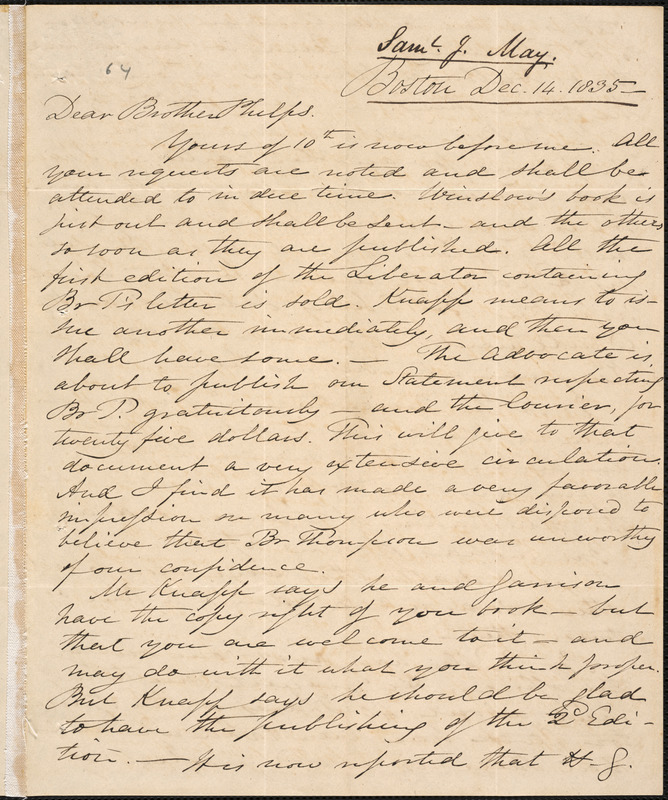 64
Saml. J. May.
Boston Dec. 14. 1835—
Dear Brother Phelps.
Yours of 10th is now before me. All
your requests are noted and shall be
attended to in due time. Winslow's book is
just out and shall be sent— and the others
so soon as they are published. All the
first edition of the Liberator containing
Br T's letter is sold. Knapp means to is-
sue another immediately, and then you
shall have some.— The Advocate is
about to publish our Statement respecting
Br T. gratuitously — and the Courier, for
twenty five dollars. This will give to that
document a very extensive circulation.
And I find it has made a very favorable
impression on many who were disposed to
believe that Br Thompson was unworthy
of our confidence.
Mr Knapp says he and Garrison
have the copy right of your book — but
that you are welcome to it — and
may do with it what you think proper.
But Knapp says he should be glad
to have the publishing of the 2d Edi-
tion.— It is now reported that H. G.